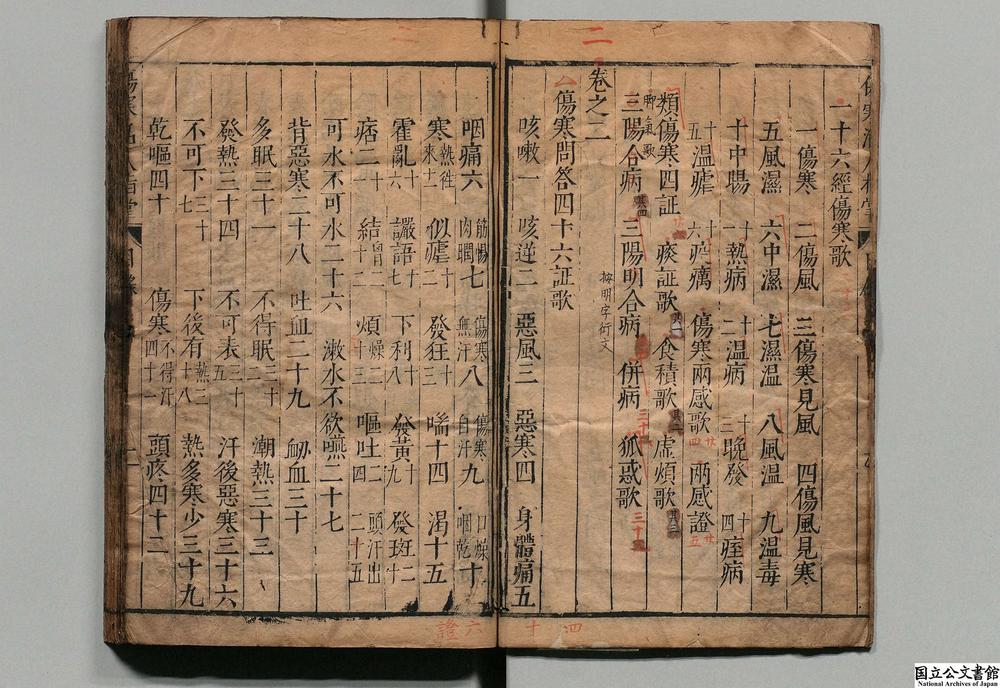 一十六經傷寒歌
一傷寒 二傷風 三傷寒見風 四傷風見寒
五風濕 六中濕 七濕溫 八風溫 九溫毒
十中暍 十一熱病 十二溫病 十三晚發 十四痓病
十五溫瘧 十六疫癘 傷寒兩感歌 廿四 兩感證 廿五
類傷寒四証 痰証歌 食積歌 虛煩歌
脚氣歌
三陽合病 三陽明合病 併病 狐惑歌
按明字衍文
卷之二
傷寒問答四十六証歌
咳嗽一 咳逆二 惡風三 惡寒四 身體痛五
咽痛六 筋惕肉瞤七 傷寒無汗八 傷寒自汗九 口燥咽乾十
寒熱徃來十一 似瘧十二 發狂十三 喘十四 渴十五
霍亂十六 讝語十七 下利十八 發黃十九 發斑二十
痞二十一 結胸二十二 煩燥二十三 嘔吐二十四 頭汗出二十五
可水不可水二十六 漱水不欲嚥二十七
背惡寒二十八 吐血二十九 衂血三十
多眠三十一 不得眠三十二 潮熱三十三
發熱三十四 不可表三十五 汗後惡寒三十六
不可下三十七 下後有熱三十八 熱多寒少三十九
乾嘔四十 傷寒不得汗四十一 頭疼四十二
二
二
四十六證
国立公文書館
National Archives of Japan